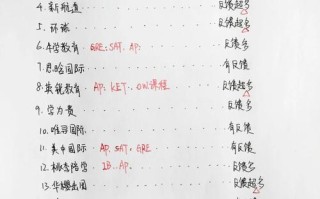 4. 新航道 反馈超多
5. 环球 反馈多
6. A学教育 GRE. SAT. AP. 反馈多
7. 思睑国际 有反馈
8. 英砚教育 AP. KET. OW课程 反馈超多
9. 学为贵 反馈多
10. 唯寻国际 有反馈
11. 美申国际 AP. SAT. GRE 有反馈
12. 桃李陪学 IB. AP. 反馈多
13. 华樱出国 反馈超多